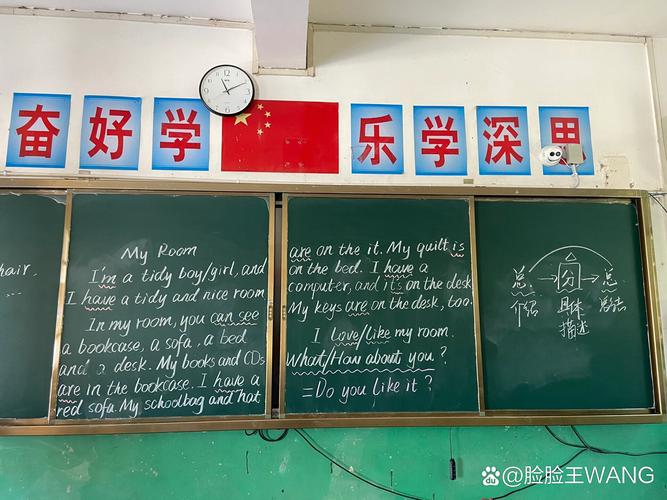 奋 好 学 乐 学 深 思
hair,
...
My Room
I'm a tidy boy/girl, and
I have a tidy and nice room
In my room, you can see
a bookcase, a sofa, a bed
and a desk. My books and CDs
are in the bookcase. I have a
red sofa. My schoolbag and hat
are on the it. My quilt is
on the bed. I have a
computer, and it's on the desk
My keys are on the desk, too.
I love/like my room.
What/How about you?
=Do you like it?
总→分→总
介绍 具体 总结
描述
Baidu @脸脸王WANG